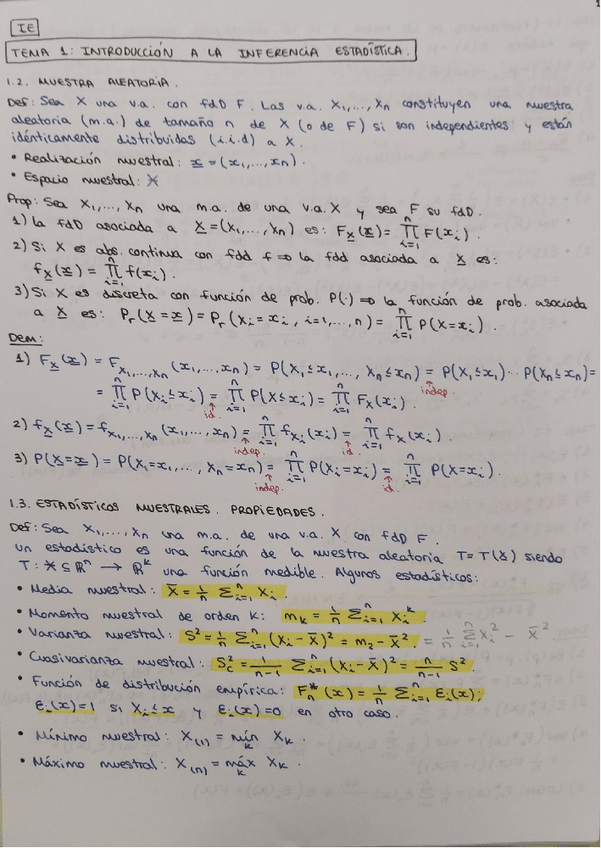 1
IE
TEMA 1: INTRODUCCIÓN A LA INFERENCIA ESTADÍSTICA.
1.2. MUESTRA ALEATORIA.
Def: Sea X una v.a. con fdD F. Las v.a. X₁,..., Xₙ constituyen una muestra
aleatoria (m.a.) de tamaño n de X (o de F) si son independientes y están
idénticamente distribuidas (i.i.d) a X.
• Realización muestral: x̲ = (x₁,...,xₙ).
• Espacio muestral: 𝒳
Prop: Sea X₁,..., Xₙ una m.a. de una v.a. X y sea F su fdD.
1) la fdD asociada a X̲ = (X₁,..., Xₙ) es: F_X̲(x̲) = ∏ᵢ₌₁ⁿ F(xᵢ).
2) Si X es abs. continua con fdd f ⇒ la fdd asociada a X̲ es:
f_X̲(x̲) = ∏ᵢ₌₁ⁿ f(xᵢ).
3) Si X es discreta con función de prob. P(·) ⇒ la función de prob. asociada
a X̲ es: Pr(X̲ = x̲) = Pr(Xᵢ = xᵢ, i=1,...,n) = ∏ᵢ₌₁ⁿ P(X=xᵢ).
Dem:
1) F_X̲(x̲) = F_X₁,...,Xₙ(x₁,...,xₙ) = P(X₁ ≤ x₁,..., Xₙ ≤ xₙ) = P(X₁ ≤ x₁)··P(Xₙ ≤ xₙ) =
indep.
= ∏ᵢ₌₁ⁿ P(Xᵢ ≤ xᵢ) = ∏ᵢ₌₁ⁿ P(X ≤ xᵢ) = ∏ᵢ₌₁ⁿ F_X(xᵢ).
id.
2) f_X̲(x̲) = f_X₁,...,Xₙ(x₁,...,xₙ) = ∏ᵢ₌₁ⁿ f_Xᵢ(xᵢ) = ∏ᵢ₌₁ⁿ f_X(xᵢ).
indep. id.
3) P(X̲ = x̲) = P(X₁=x₁,..., Xₙ=xₙ) = ∏ᵢ₌₁ⁿ P(Xᵢ=xᵢ) = ∏ᵢ₌₁ⁿ P(X=xᵢ).
indep. id.
1.3. ESTADÍSTICOS MUESTRALES. PROPIEDADES.
Def: Sea X₁,..., Xₙ una m.a. de una v.a. X con fdD F.
un estadístico es una función de la muestra aleatoria T = T(X̲) siendo
T: 𝒳 ⊆ ℝⁿ → ℝᵏ una función medible. Algunos estadísticos:
• Media muestral: X̄ = 1/n ∑ᵢ₌₁ⁿ Xᵢ.
• Momento muestral de orden k: mₖ = 1/n ∑ᵢ₌₁ⁿ Xᵢᵏ
• Varianza muestral: S² = 1/n ∑ᵢ₌₁ⁿ (Xᵢ - X̄)² = m₂ - X̄². = 1/n ∑ᵢ₌₁ⁿ Xᵢ² - X̄²
• Cuasivarianza muestral: S_c² = 1/(n-1) ∑ᵢ₌₁ⁿ (Xᵢ - X̄)² = n/(n-1) S²
• Función de distribución empírica: Fₙ*(x) = 1/n ∑ᵢ₌₁ⁿ εᵢ(x);
εᵢ(x) = 1 si Xᵢ ≤ x y εᵢ(x) = 0 en otro caso.
• Mínimo muestral: X₍₁₎ = mín_k X_k.
• Máximo muestral: X₍ₙ₎ = máx_k X_k.